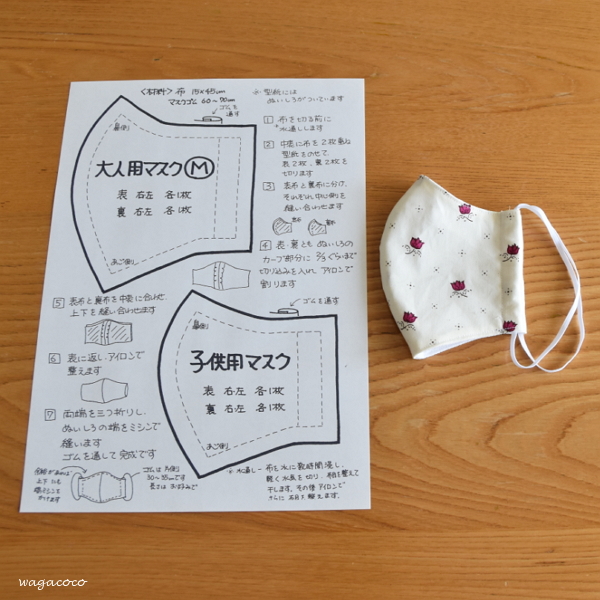 〈材料〉 布 15×45cm
マスクゴム 60～70cm
ゴムを
通す
鼻側
大人用マスク Ⓜ
表 右・左 各1枚
裏 右・左 各1枚
あご側
※ 型紙には
ぬいしろがついています
1 布を切る前に
※水通しします
2 中表に布を2枚重ね
型紙をのせて、
表2枚、裏2枚を
切ります
3 表布と裏布に分け、
それぞれ中心側を
縫い合わせます
表布 裏布
4 表・裏とも ぬいしろの
カーブ部分に 2/3くらいまで
切り込みを入れ アイロンで
割ります
5 表布と裏布を中表に合わせ、
上下を縫い合わせます
6 表に返し、アイロンで
整えます
7 両端を三つ折りし、
ぬいしろの端をミシンで
縫います
ゴムを通して完成です
ゴムを通す
鼻側
子供用マスク
表 右・左 各1枚
裏 右・左 各1枚
あご側
上下にも
ゴムは片側
30～35cmです
長さは お好みで
※ 水通し～ 布を水に数時間浸し、
軽く水気を切り、布目を整えて
干します。その後アイロンで
さらに布目を整えます。
wagacoco